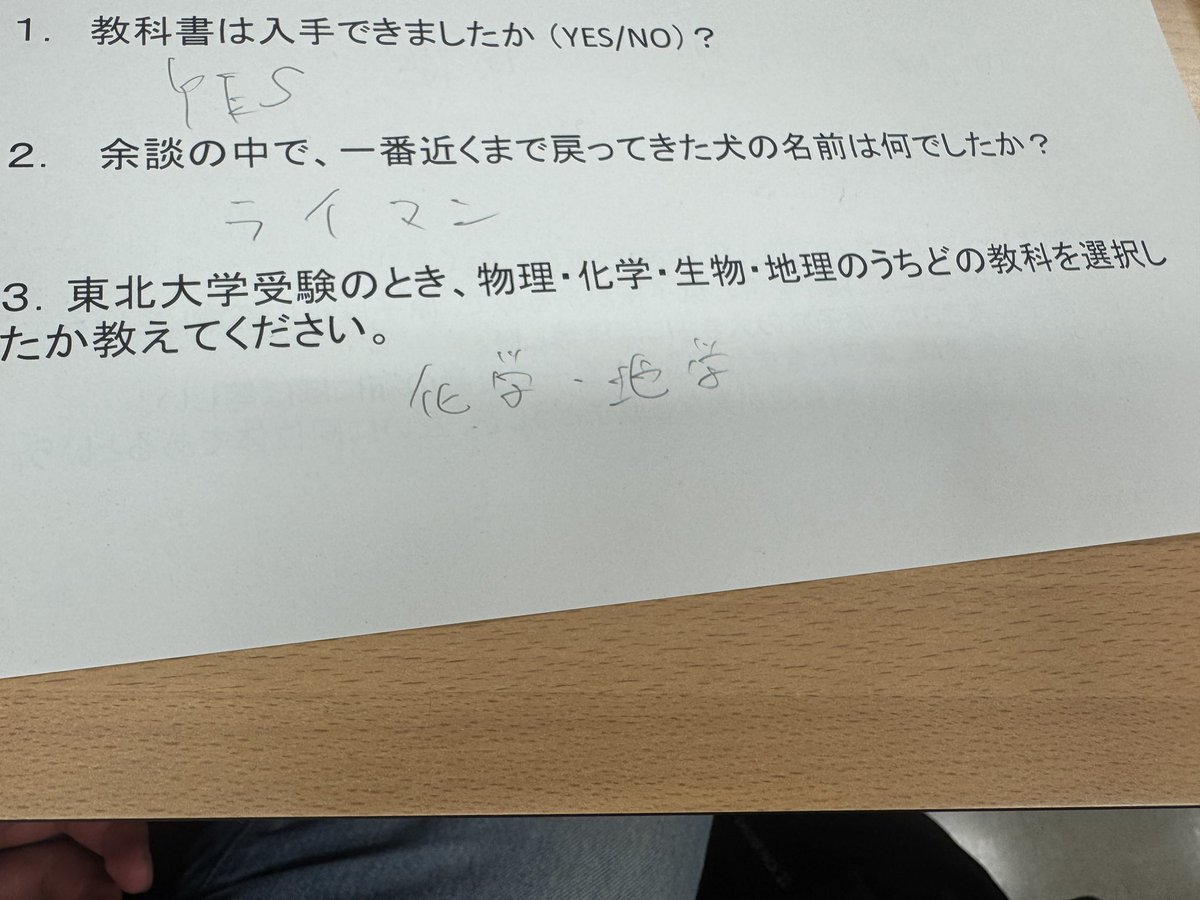 1. 教科書は入手できましたか（YES/NO）？
YES
2. 余談の中で、一番近くまで戻ってきた犬の名前は何でしたか？
ライマン
3. 東北大学受験のとき、物理・化学・生物・地理のうちどの教科を選択し
たか教えてください。
化学・地学